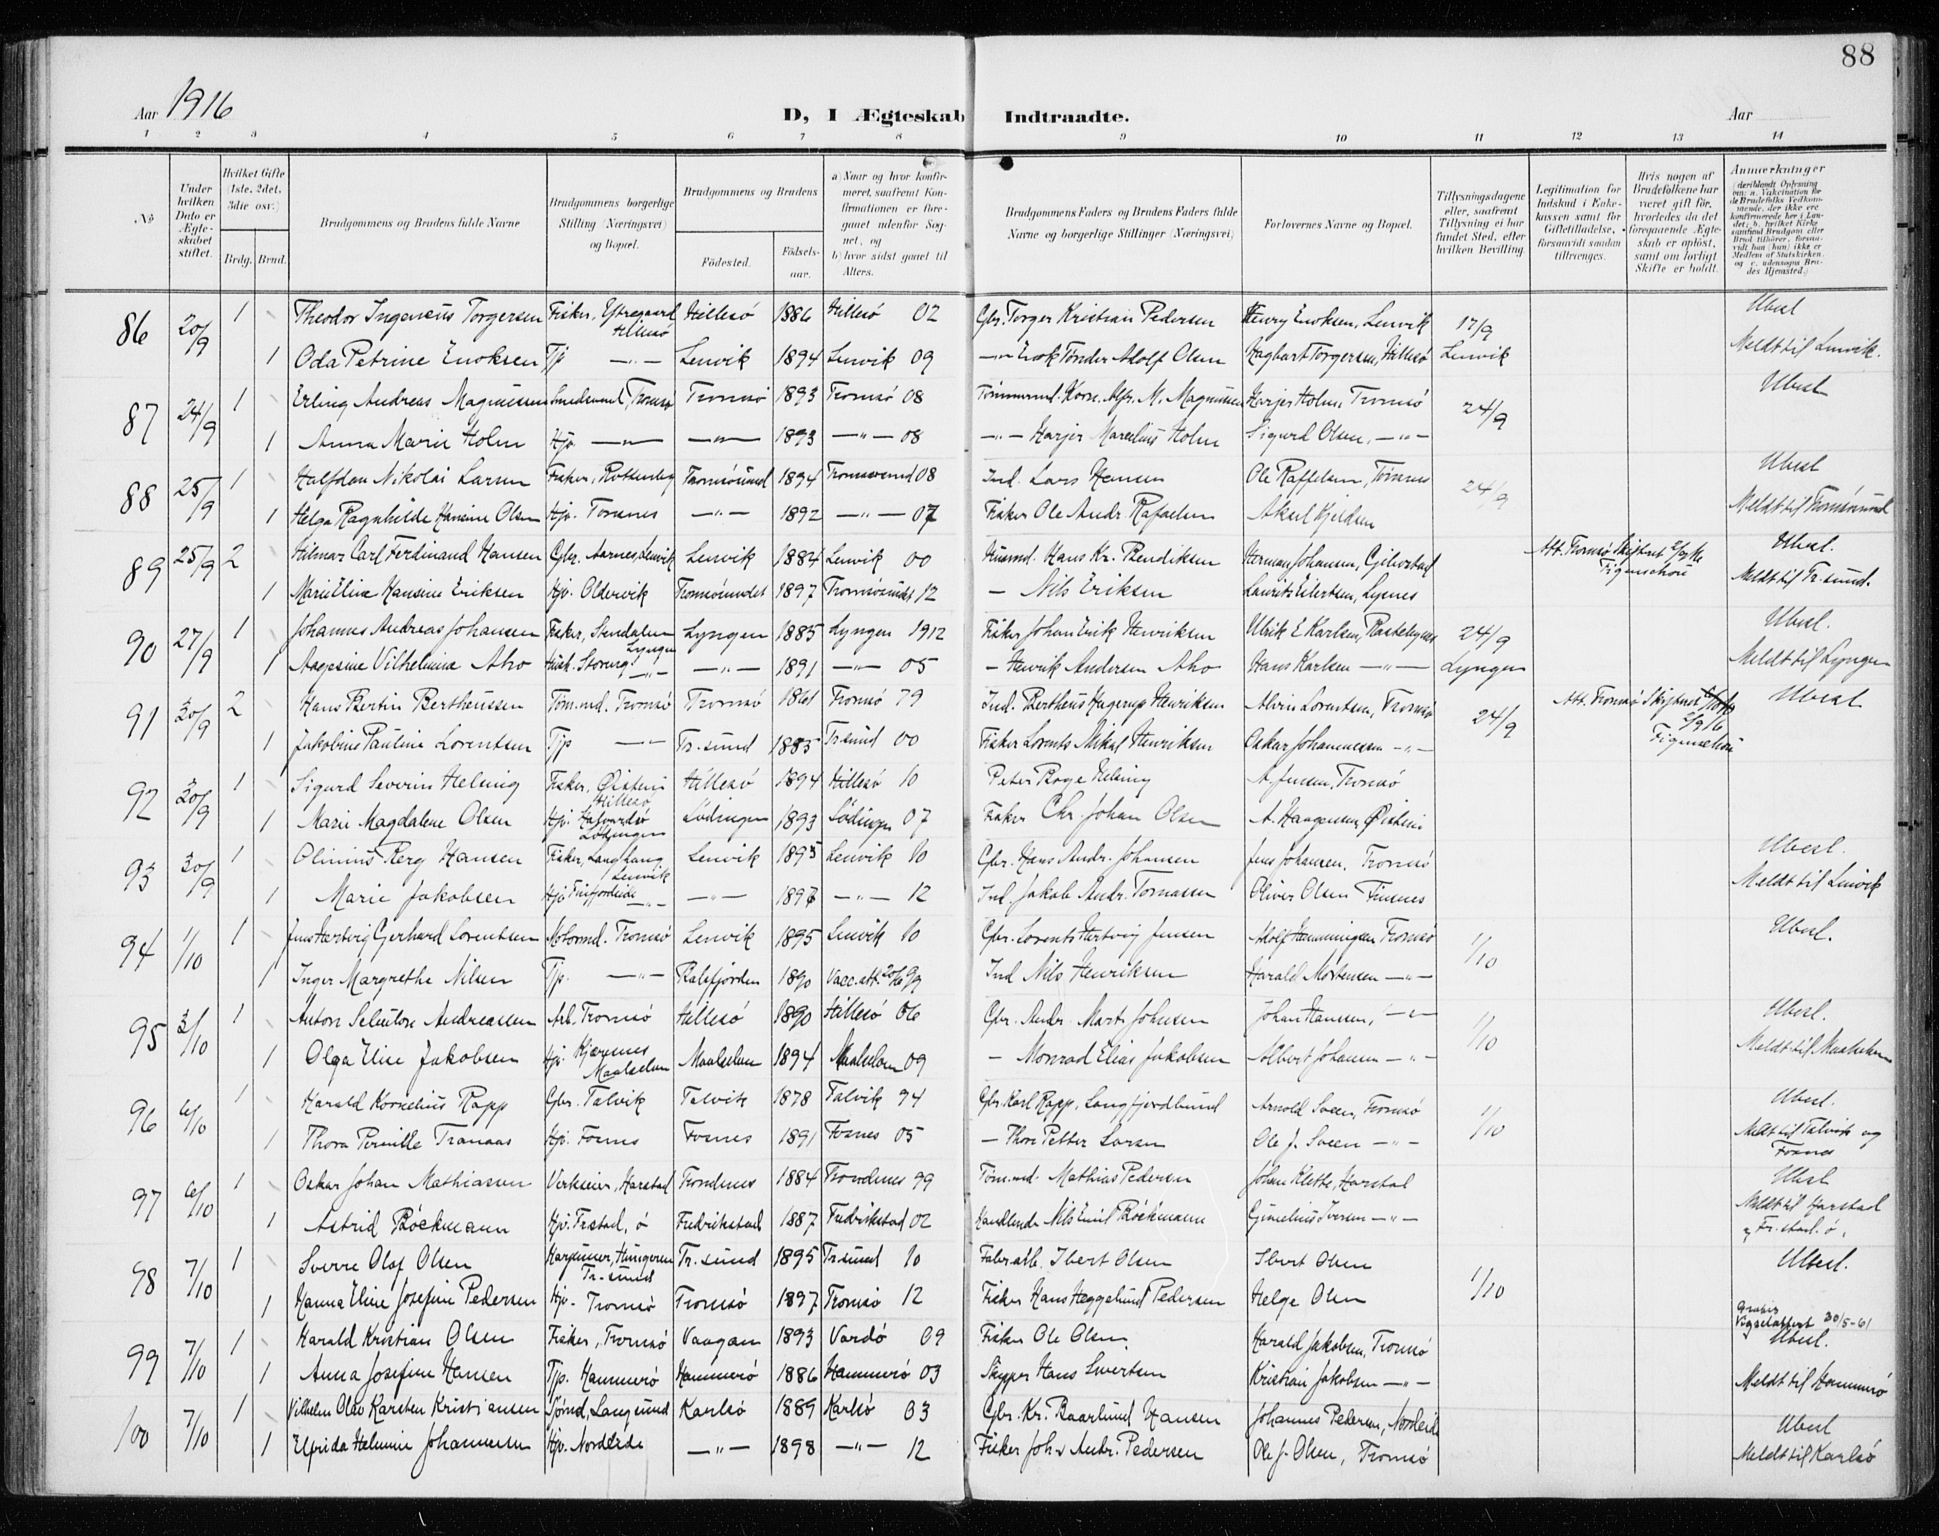 88
Aar 1916
D, I Ægteskab Indtraadte.
Aar
1 2 3 4 5 6 7 8 9 10 11 12 13 14
No
Under hvilken Dato er Ægteskabet stiftet.
Hvilket Gifte (1ste, 2det, 3die osv.)
Brdg. Brud.
Brudgommens og Brudens fulde Navne
Brudgommens borgerlige Stilling (Næringsvei) og Bopæl.
Brudgommens og Brudens
Fødested.
Fødselsaar.
a) Naar og hvor konfirmeret, saafremt Konfirmationen er foregaaet udenfor Sognet, og
b) hvor sidst gaaet til Alters.
Brudgommens Faders og Brudens Faders fulde Navne og borgerlige Stillinger (Næringsvei)
Forlovernes Navne og Bopæl.
Tillysningsdagene eller, saafremt Tillysning ei har fundet Sted, efter hvilken Bevilling
Legitimation for Indskud i Enkekassen samt for Giftetilladelse, forsaavidt saadan tiltrænges.
Hvis nogen af Brudefolkene har været gift før, hvorledes da det foregaaende Ægteskab er opløst, samt om lovligt Skifte er holdt.
Anmærkninger
86 20/9 1 Theodor Ingenius Torgersen Fisker, Yttregaard Hillesö Hillesö 1886 Hillesö 02 Gbr. Torger Kristian Pedersen Henry Enoksen, Lenvik 17/9 Ubesl
1 Oda Petrine Enoksen Tjp —"— Lenvik 1894 Lenvik 09 —"— Enok Tønder Adolf Olsen Hagbart Torgersen, Hillesö Lenvik Meldt til Lenvik.
87 24/9 1 Erling Andreas Magnussen Smedsvend, Tromsö Tromsö 1893 Tromsö 08 Tömmermd. Korn. Alfr. M. Magnussen Harjer Holm, Tromsö 24/9 Ubesl
1 Anna Marie Holm Hjv. —"— —"— 1893 —"— 08 —"— Harjer Marelius Holm Sigurd Olsen, —"—
88 25/9 1 Halfdan Nikolai Larsen Fisker, Tromsösund 1894 Tromsösund 08 Ind. Lars Hansen Ole Raffelsen, 24/9 Ubesl
1 Helga Ragnhilde Hansine Olsen Hjv. Tomasnes —"— 1892 —"— 07 Fisker Ole Andr. Rafaelsen Aksel Kjeldsen Meldt til Tromsösund
89 25/9 2 Hilmar Carl Ferdinand Hansen Gbr. Aarnes, Lenvik Lenvik 1884 Lenvik 00 Husmd. Hans Kr. Bendiksen Herman Johansen, Gibostad Att. Tromsö Skiftret Figenschou Ubesl.
1 Marie Eline Hansine Eriksen Hjv. Oldervik Tromsösundet 1897 Tromsösundet 12 — Nils Eriksen Laurits Eilertsen, Lysnes Meldt til Tr. sund.
90 27/9 1 Johannes Andreas Johansen Fisker, Stendalen Lyngen Lyngen 1885 Lyngen 1912 Fisker Johan Erik Henriksen Ulrik E Karlsen, 24/9 Ubesl.
1 Aagesine Vilhelmine Aho —"— —"— 1891 —"— 05 — Henrik Andersen Aho Hans Karlsen —"— Lyngen Meldt til Lyngen
91 30/9 2 Hans Bertin Bertheussen Töm.md. Tromsö Tromsö 1861 Tromsö 79 Ind. Bertheus Hagerup Henriksen Alvin Lorentsen, Tromsö 24/9 Att. Tromsö Skiftret 2/9 16 Figenschou Ubesl
1 Jakobine Pauline Lorentsen Tjp —"— Tr.sund 1885 Tr.sund 00 Fisker Lorents Mikal Henriksen Oskar Johannessen —"—
92 30/9 1 Sigurd Severin Helmig Fisker, Hillesö Hillesö 1894 Hillesö 10 Peter Boye Helmig A. Jensen, Tromsö
1 Marie Magdalene Olsen Hjv. Lödingen Lödingen 1893 Lödingen 07 Fisker Chr. Johan Olsen A. Haagensen,
93 30/9 1 Olinius Berg Hansen Fisker, Lenvik Lenvik 1895 Lenvik 10 Gbr. Hans Andr. Johansen Jens Johansen, Tromsö Ubesl.
1 Marie Jakobsen Hjv. Finfjordeide —"— —"— 1897 —"— 12 Ind. Jakob Andr. Tomassen Oliver Olsen Finsnes Meldt til Lenvik
94 1/10 1 Jens Hertvig Gerhard Lorentsen Motormd. Tromsö Lenvik 1895 Lenvik 10 Gbr. Lorents Hertvig Jensen Adolf Hemmingsen Tromsö 1/10 Ubesl.
1 Inger Margrethe Nilsen Tjp. —"— Balsfjorden 1890 Vacc. att. 20/6 99 Ind Nils Henriksen Harald Mortensen —"—
95 3/10 1 Anton Selnton Andreassen Arb. Tromsö Hillesö 1890 Hillesö 06 Gbr. Andr. Mart. Johnsen Johan Hansen, —"— 1/10 Ubesl.
1 Olga Elise Jakobsen Hjv. Kjærsnes Maalselven Maalselven 1894 Maalselven 09 — Monrad Elias Jakobsen Albert Johansen —"— Meldt til Maalselven
96 6/10 1 Harald Kornelius Rapp Gbr. Talvik Talvik 1878 Talvik 94 Gbr. Karl Rapp, Langfjordbund Arnold Sveen, Tromsö 1/10 Ubesl.
1 Thora Pernille Tranaas Hjv. Fosnes Fosnes 1891 Fosnes 05 — Thore Petter Larsen Ole J. Sveen —"— Meldt til Talvik og Fosnes
97 6/10 1 Oskar Johan Mathiassen Verkseier, Harstad Trondenes 1884 Trondenes 99 Töm.md. Mathias Pedersen Johan Klette, Harstad Ubesl
1 Astrid Böckmann Hjv. Fr.stad, ö Fredrikstad 1887 Fredrikstad 02 Handlende Nils Emil Böckmann Iversen —"— Meldt til Harstad og Fr. stad. ö.
98 7/10 1 Sverre Olaf Olsen Tr.sund Tr.sund 1895 Tr.sund 10 Fabr.arb. Ibert Olsen Ibert Olsen 1/10 Ubesl.
1 Hanna Eline Josefine Pedersen Hjv. Tromsö Tromsö 1897 Tromsö 12 Fisker Hans Heggelund Pedersen Helge Olsen
Gratis Vigselattest 30/5-61
99 7/10 1 Harald Kristian Olsen Fisker, Tromsö Vaagan 1893 Vardö 09 Fisker Ole Olsen Harald Jakobsen, Tromsö Ubesl.
1 Anna Josefine Hansen Tjp. Hammerö Hammerö 1886 Hammerö 03 Skipper Hans Sivertsen Kristian Jakobsen —"— Meldt til Hammerö
100 7/10 1 Vilhelm Olav Karsten Kristiansen Sjömd, Langsund Karlsö 1889 Karlsö 03 Gbr. Kr. Baarlund Hansen Johannes Pedersen, Nordeide Ubesl
1 Elfrida Helmine Johannessen Hjv. Nordeide —"— 1898 —"— 12 Fisker Joh.s Andr. Pedersen Ole J. Olsen, Tromsö Meldt til Karlsö